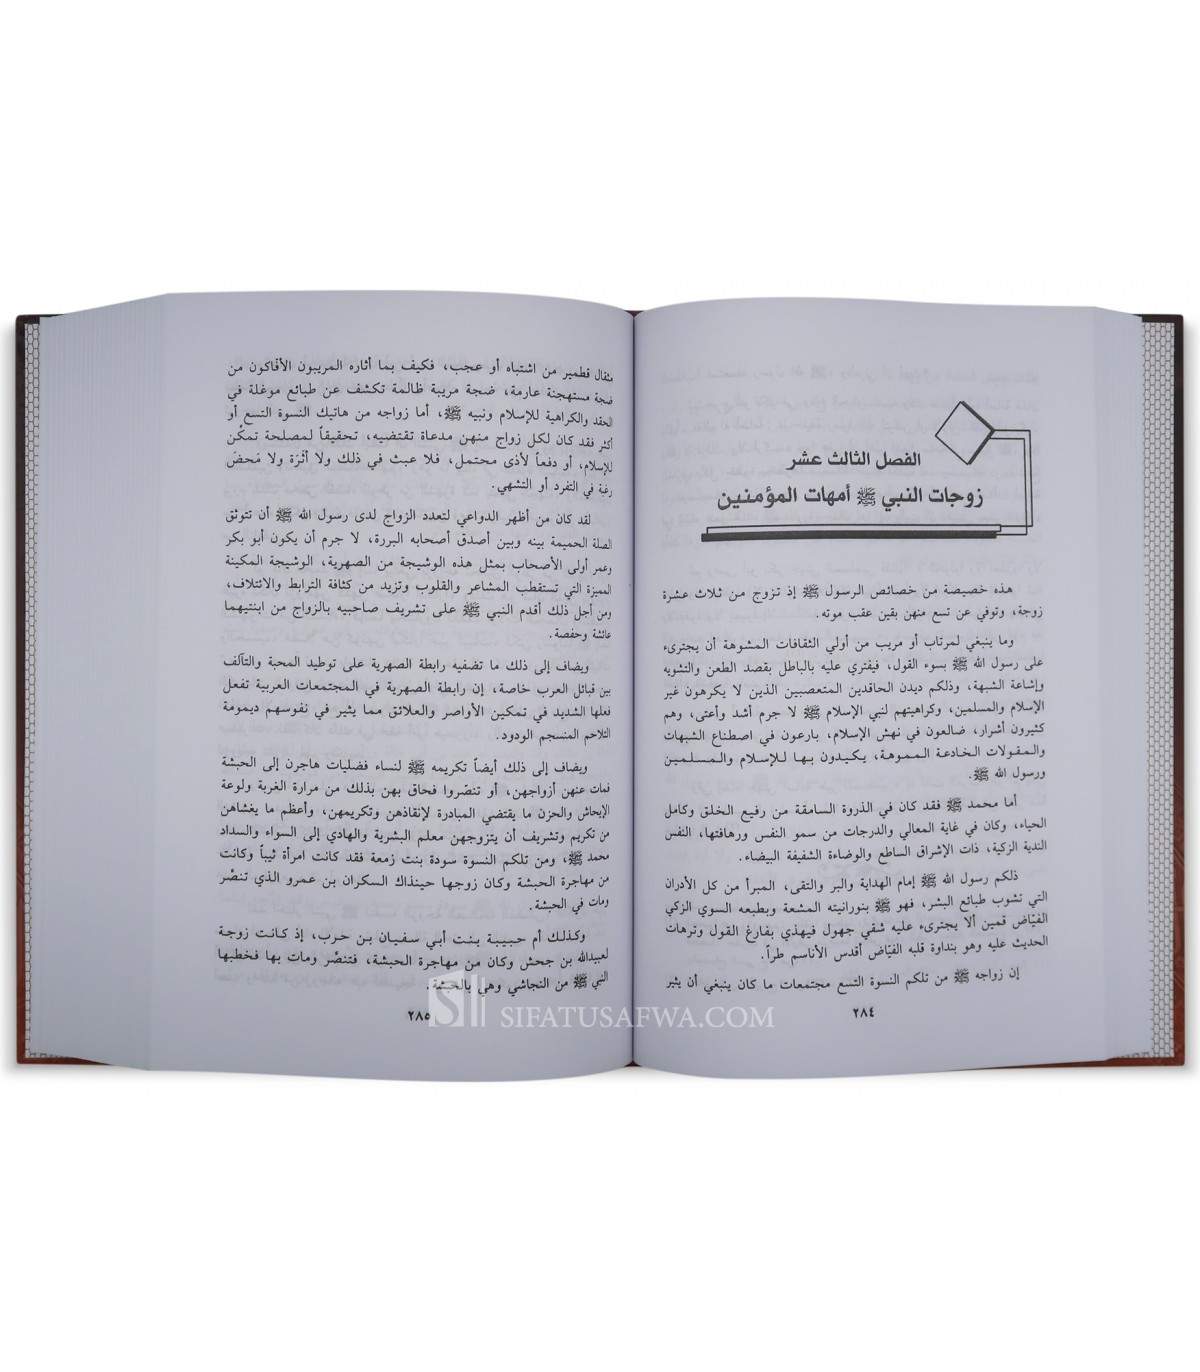 الفصل الثالث عشر
زوجات النبي ﷺ أمهات المؤمنين
هذه خصيصة من خصائص الرسول ﷺ إذ تزوج من ثلاث عشرة
زوجة، وتوفي عن تسع منهن بقين عقب موته.
وما ينبغي لمرتاب أو مريب من أولي الثقافات المشوهة أن يجترىء
على رسول الله ﷺ بسوء القول، فيفتري عليه بالباطل بقصد الطعن والتشويه
وإشاعة الشبهة، وذلكم ديدن الحاقدين المتعصبين الذين لا يكرهون غير
الإسلام والمسلمين، وكراهيتهم لنبي الإسلام ﷺ لا جرم أشد وأعتى، وهم
كثيرون أشرار، ضالعون في نهش الإسلام، بارعون في اصطناع الشبهات
والمقولات الخادعة المموهة، يكيدون بها للإسلام والمسلمين
ورسول الله ﷺ.
أما محمد ﷺ فقد كان في الذروة السامقة من رفيع الخلق وكامل
الحياء، وكان في غاية المعالي والدرجات من سمو النفس ورهافتها، النفس
الندية الزكية، ذات الإشراق الساطع والوضاءة الشفيفة البيضاء.
ذلكم رسول الله ﷺ إمام الهداية والبر والتقى، المبرأ من كل الأدران
التي تشوب طبائع البشر، فهو ﷺ بنورانيته المشعة وبطبعه السوي الزكي
الفيّاض قمين ألا يجترىء عليه شقي جهول فيهذي بفارغ القول وترهات
الحديث عليه وهو بنداوة قلبه الفيّاض أقدس الأناسم طراً.
إن زواجه ﷺ من تلكم النسوة التسع مجتمعات ما كان ينبغي أن يثير
٢٨٤
مثقال قطمير من اشتباه أو عجب، فكيف بما أثاره المريبون الأفاكون من
ضجة مستهجنة عارمة، ضجة مريبة ظالمة تكشف عن طبائع موغلة في
الحقد والكراهية للإسلام ونبيه ﷺ، أما زواجه من هاتيك النسوة التسع أو
أكثر فقد كان لكل زواج منهن مدعاة تقتضيه، تحقيقاً لمصلحة تمكّن
للإسلام، أو دفعاً لأذى محتمل، فلا عبث في ذلك ولا أثرة ولا محض
رغبة في التفرد أو التشهي.
لقد كان من أظهر الدواعي لتعدد الزواج لدى رسول الله ﷺ أن تتوثق
الصلة الحميمة بينه وبين أصدق أصحابه البررة، لا جرم أن يكون أبو بكر
وعمر أولى الأصحاب بمثل هذه الوشيجة من الصهرية، الوشيجة المكينة
المميزة التي تستقطب المشاعر والقلوب وتزيد من كثافة الترابط والائتلاف،
ومن أجل ذلك أقدم النبي ﷺ على تشريف صاحبيه بالزواج من ابنتيهما
عائشة وحفصة.
ويضاف إلى ذلك ما تضفيه رابطة الصهرية على توطيد المحبة والتآلف
بين قبائل العرب خاصة، إن رابطة الصهرية في المجتمعات العربية تفعل
فعلها الشديد في تمكين الأواصر والعلائق مما يثير في نفوسهم ديمومة
التلاحم المنسجم الودود.
ويضاف إلى ذلك أيضاً تكريمه ﷺ لنساء فضليات هاجرن إلى الحبشة
فمات عنهن أزواجهن، أو تنصّروا فحاق بهن بذلك من مرارة الغربة ولوعة
الإيحاش والحزن ما يقتضي المبادرة لإنقاذهن وتكريمهن، وأعظم ما يغشاهن
من تكريم وتشريف أن يتزوجهن معلم البشرية والهادي إلى السواء والسداد
محمد ﷺ، ومن تلكم النسوة سودة بنت زمعة فقد كانت امرأة ثيباً وكانت
من مهاجرة الحبشة وكان زوجها حينذاك السكران بن عمرو الذي تنصّر
ومات في الحبشة.
وكذلك أم حبيبة بنت أبي سفيان بن حرب، إذ كانت زوجة
لعبيدالله بن جحش وكان من مهاجرة الحبشة، فتنصّر ومات بها فخطبها
النبي ﷺ من النجاشي وهي بالحبشة.
٢٨٥
SIFATUSAFWA.COM